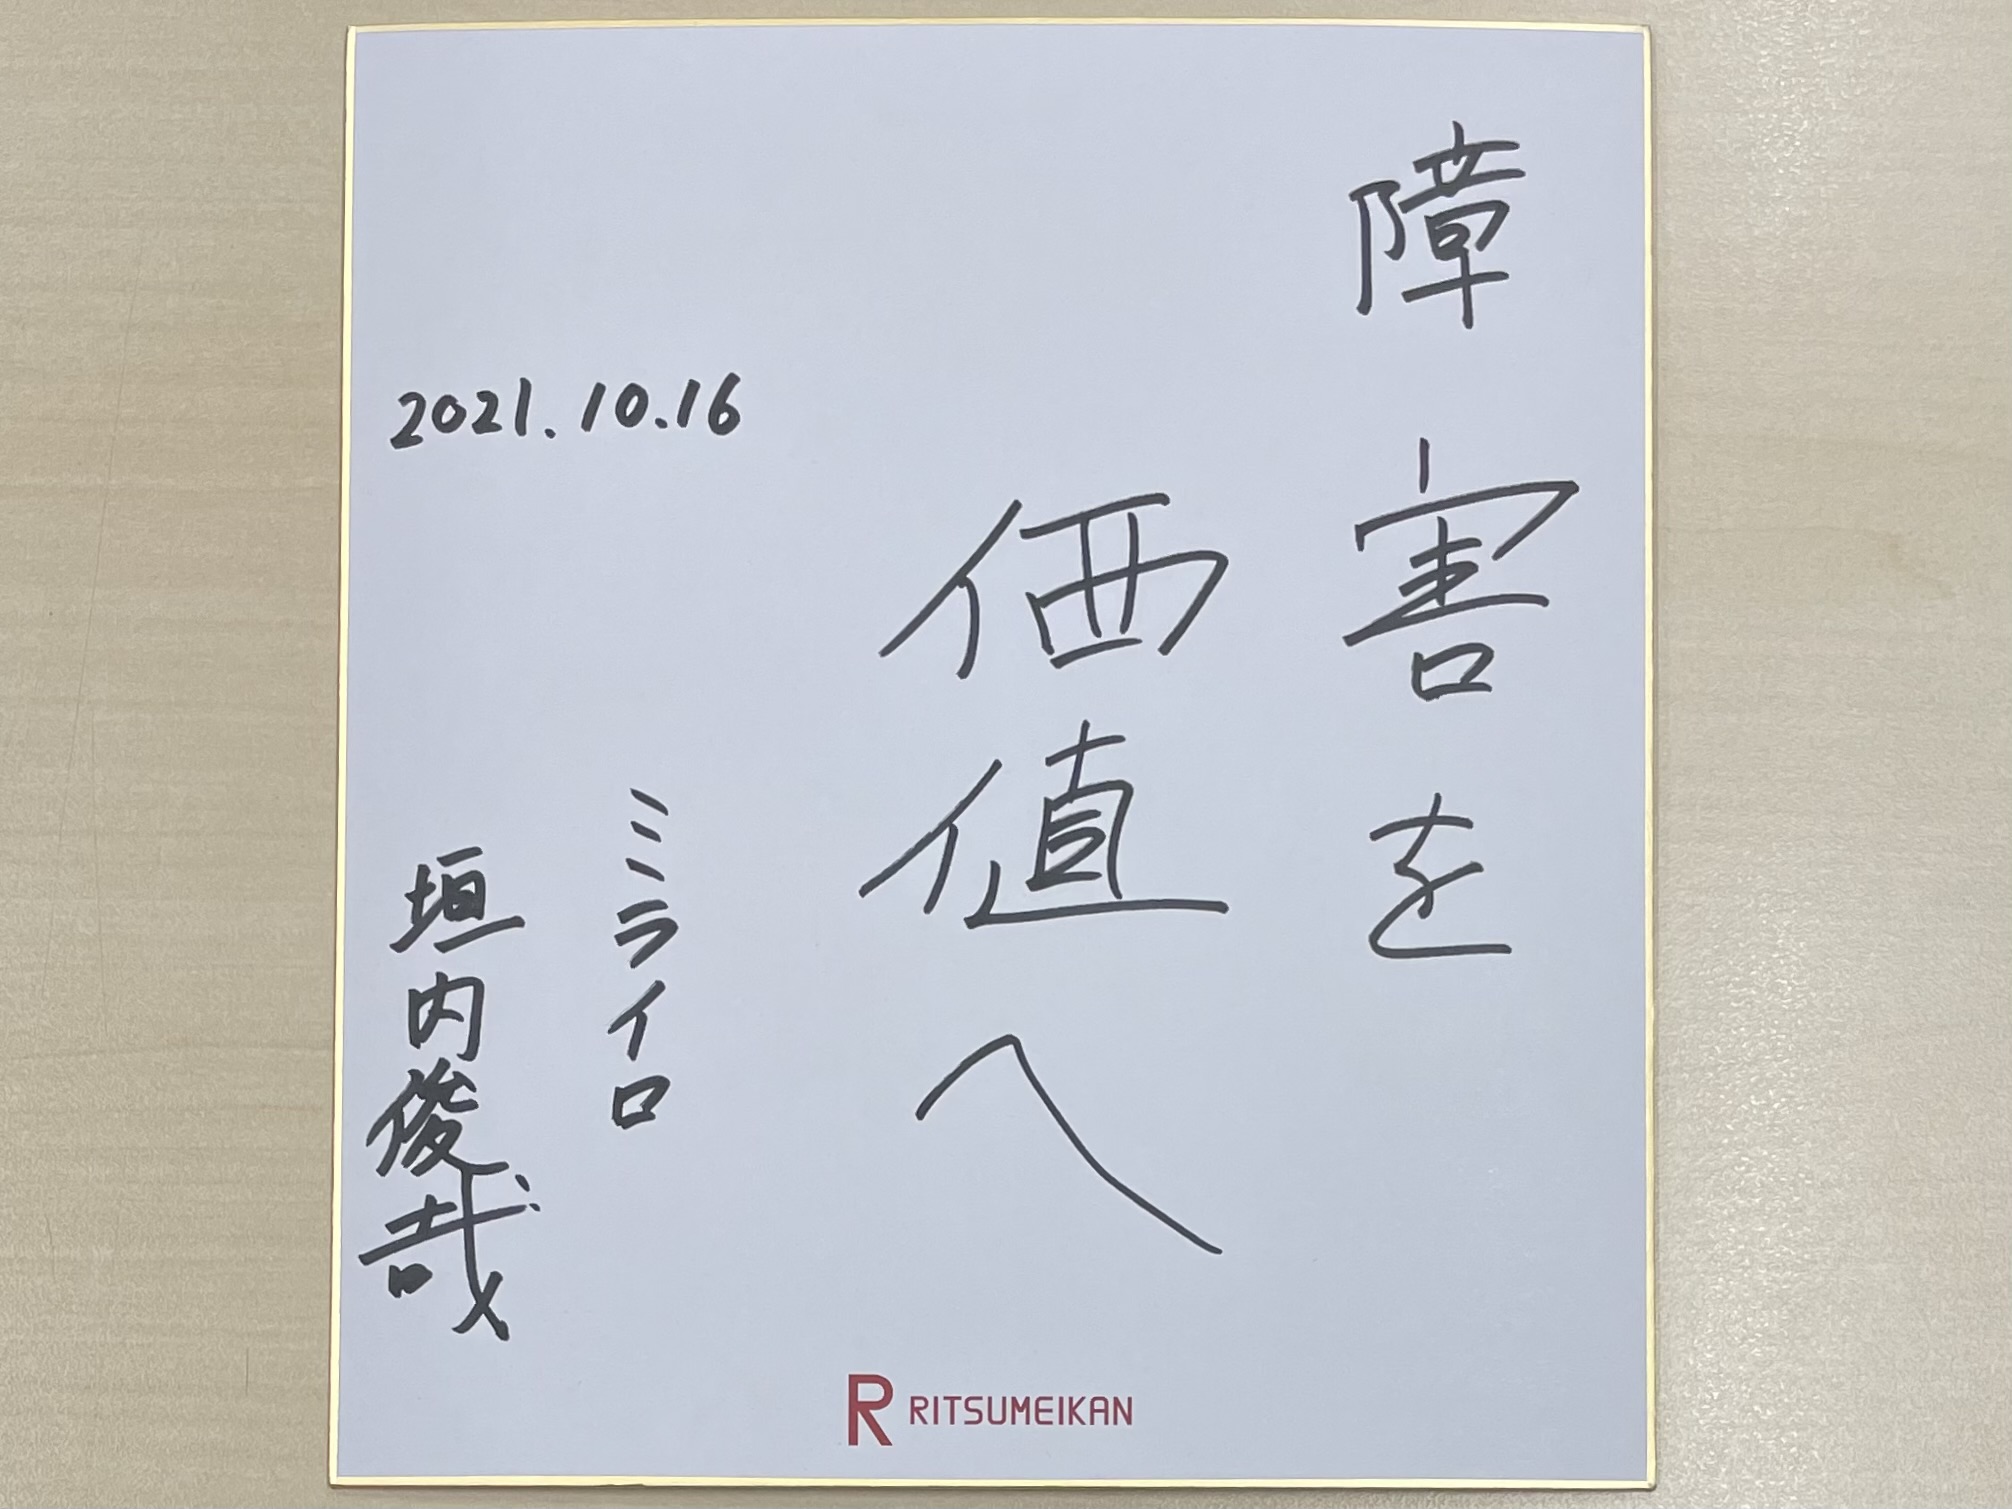 障害を
価値へ
2021.10.16
ミライロ
垣内俊哉
R RITSUMEIKAN